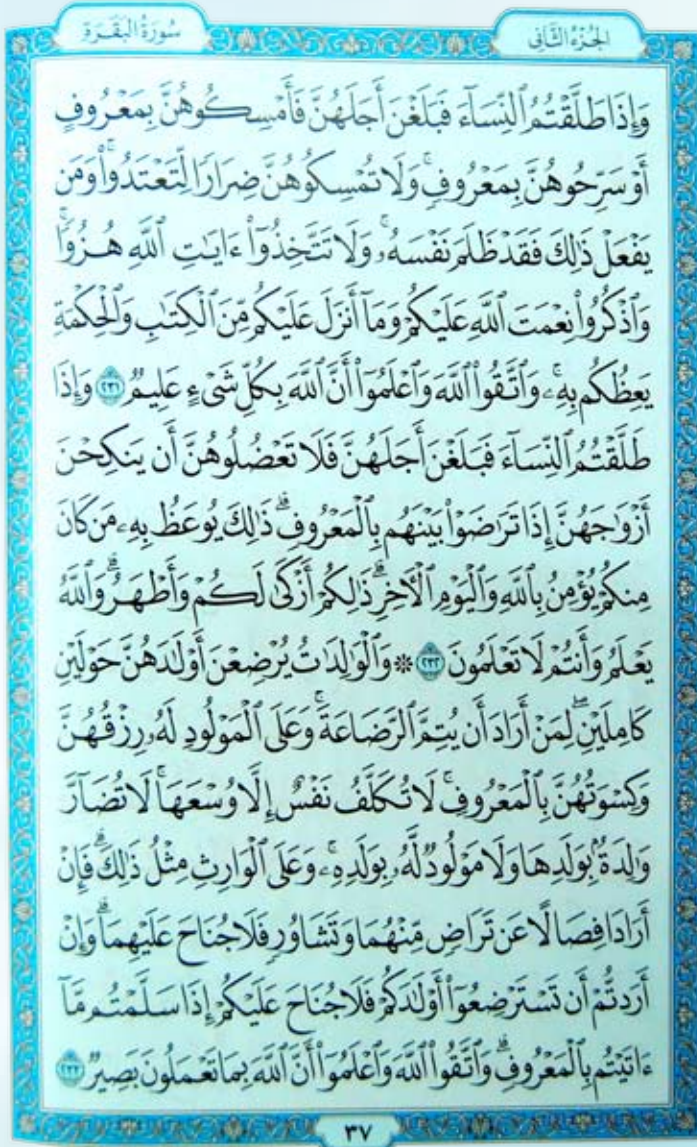 سُورَةُ البَقَرَةِ
الجُزْءُ الثَّانِي
وَإِذَا طَلَّقْتُمُ ٱلنِّسَآءَ فَبَلَغْنَ أَجَلَهُنَّ فَأَمْسِكُوهُنَّ بِمَعْرُوفٍ
أَوْ سَرِّحُوهُنَّ بِمَعْرُوفٖۚ وَلَا تُمْسِكُوهُنَّ ضِرَارٗا لِّتَعْتَدُواْۚ وَمَن
يَفْعَلْ ذَٰلِكَ فَقَدْ ظَلَمَ نَفْسَهُۥۚ وَلَا تَتَّخِذُوٓاْ ءَايَٰتِ ٱللَّهِ هُزُوٗاۚ
وَٱذْكُرُواْ نِعْمَتَ ٱللَّهِ عَلَيْكُمْ وَمَآ أَنزَلَ عَلَيْكُم مِّنَ ٱلْكِتَٰبِ وَٱلْحِكْمَةِ
يَعِظُكُم بِهِۦۚ وَٱتَّقُواْ ٱللَّهَ وَٱعْلَمُوٓاْ أَنَّ ٱللَّهَ بِكُلِّ شَيْءٍ عَلِيمٞ ٢٣١ وَإِذَا
طَلَّقْتُمُ ٱلنِّسَآءَ فَبَلَغْنَ أَجَلَهُنَّ فَلَا تَعْضُلُوهُنَّ أَن يَنكِحْنَ
أَزْوَٰجَهُنَّ إِذَا تَرَٰضَوْاْ بَيْنَهُم بِٱلْمَعْرُوفِۗ ذَٰلِكَ يُوعَظُ بِهِۦ مَن كَانَ
مِنكُمْ يُؤْمِنُ بِٱللَّهِ وَٱلْيَوْمِ ٱلْأٓخِرِۗ ذَٰلِكُمْ أَزْكَىٰ لَكُمْ وَأَطْهَرُۚ وَٱللَّهُ
يَعْلَمُ وَأَنتُمْ لَا تَعْلَمُونَ ٢٣٢ ۞ وَٱلْوَٰلِدَٰتُ يُرْضِعْنَ أَوْلَٰدَهُنَّ حَوْلَيْنِ
كَامِلَيْنِۖ لِمَنْ أَرَادَ أَن يُتِمَّ ٱلرَّضَاعَةَۚ وَعَلَى ٱلْمَوْلُودِ لَهُۥ رِزْقُهُنَّ
وَكِسْوَتُهُنَّ بِٱلْمَعْرُوفِۚ لَا تُكَلَّفُ نَفْسٌ إِلَّا وُسْعَهَاۚ لَا تُضَآرَّ
وَٰلِدَةُۢ بِوَلَدِهَا وَلَا مَوْلُودٞ لَّهُۥ بِوَلَدِهِۦۚ وَعَلَى ٱلْوَارِثِ مِثْلُ ذَٰلِكَۗ فَإِنْ
أَرَادَا فِصَالًا عَن تَرَاضٖ مِّنْهُمَا وَتَشَاوُرٖ فَلَا جُنَاحَ عَلَيْهِمَاۗ وَإِنْ
أَرَدتُّمْ أَن تَسْتَرْضِعُوٓاْ أَوْلَٰدَكُمْ فَلَا جُنَاحَ عَلَيْكُمْ إِذَا سَلَّمْتُم مَّآ
ءَاتَيْتُم بِٱلْمَعْرُوفِۗ وَٱتَّقُواْ ٱللَّهَ وَٱعْلَمُوٓاْ أَنَّ ٱللَّهَ بِمَا تَعْمَلُونَ بَصِيرٞ ٢٣٣
٣٧